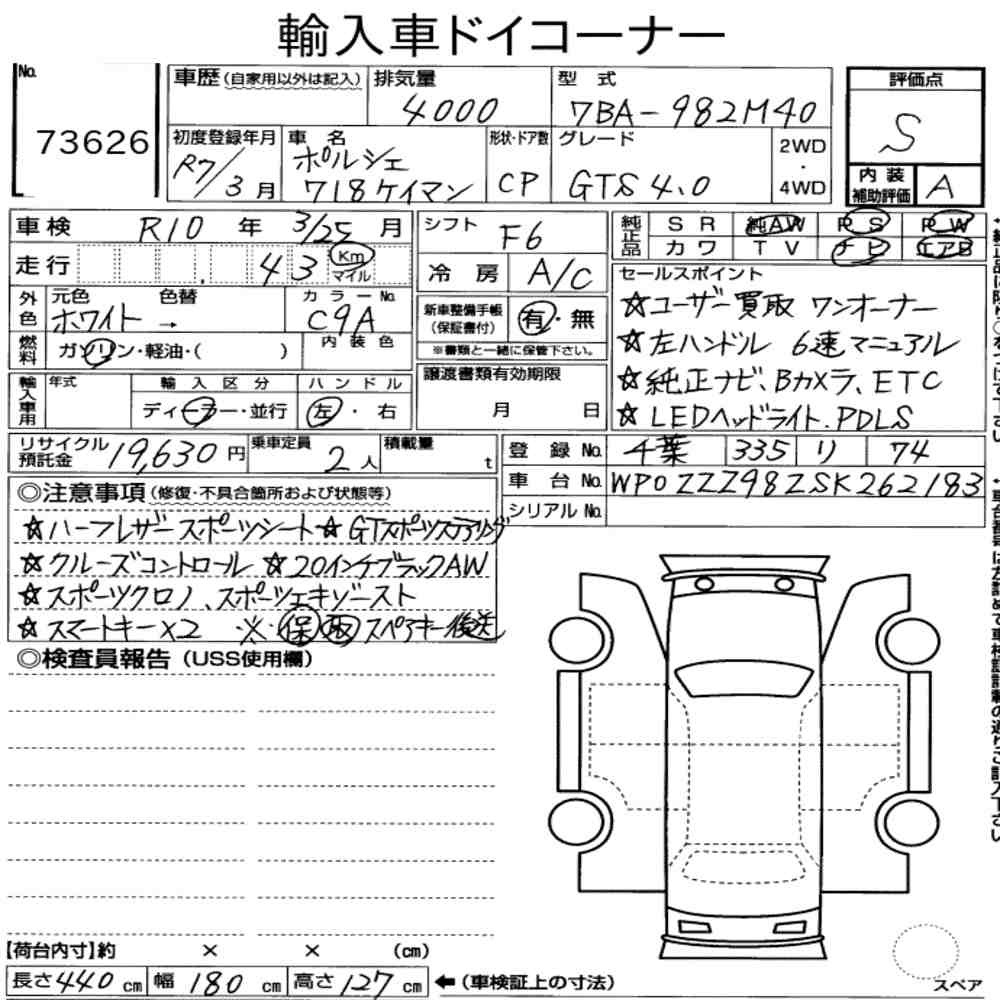 輸入車ドイコーナー
No.
73626
車歴(自家用以外は記入)
排気量
4000
型式
7BA-982M40
評価点
S
初度登録年月
R7/3月
車名
ポルシェ
718ケイマン
形状・ドア数
CP
グレード
GTS 4.0
2WD
・
4WD
内装
補助評価
A
車検 R10年 3/25月
シフト F6
純正品
SR 純AW PS PW
カワ TV ナビ エアB
走行 43 Km
マイル
冷房 A/C
セールスポイント
☆ユーザー買取 ワンオーナー
☆左ハンドル 6速マニュアル
☆純正ナビ、Bカメラ、ETC
☆LEDヘッドライト、PDLS
外色
元色 色替 カラーNo.
ホワイト → C9A
新車整備手帳
(保証書付)
有・無
※書類と一緒に保管下さい。
燃料
ガソリン・軽油・( )
内装色
譲渡書類有効期限
月 日
輸入車用
年式
輸入区分
ハンドル
ディーラー・並行
左・右
リサイクル
預託金 19,630円
乗車定員 2人
積載量 t
登録No. 千葉 335 リ 74
車台No. WP0ZZZ98ZSK262183
シリアルNo.
◎注意事項(修復・不具合箇所および状態等)
☆ハーフレザースポーツシート☆GTスポーツステアリング
☆クルーズコントロール ☆20インチブラックAW
☆スポーツクロノ、スポーツエキゾースト
☆スマートキー×2 ※保取スペアキー後送
◎検査員報告(USS使用欄)
【荷台内寸】約 × × (cm)
長さ440cm 幅180cm 高さ127cm
←(車検証上の寸法)
スペア